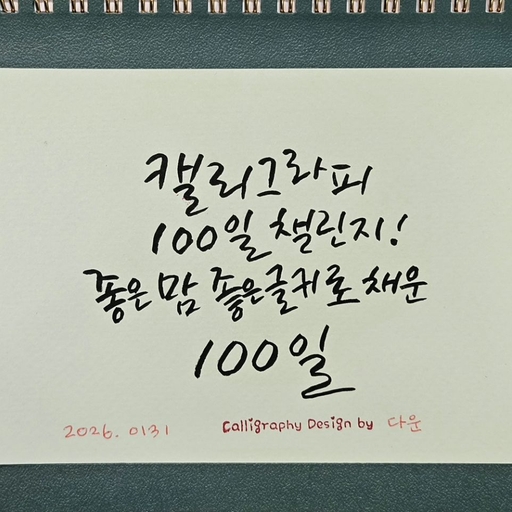 캘리그라피
100일 챌린지!
좋은 맘 좋은 글귀로 채운
100일
2026. 0131 Calligraphy Design by 다운